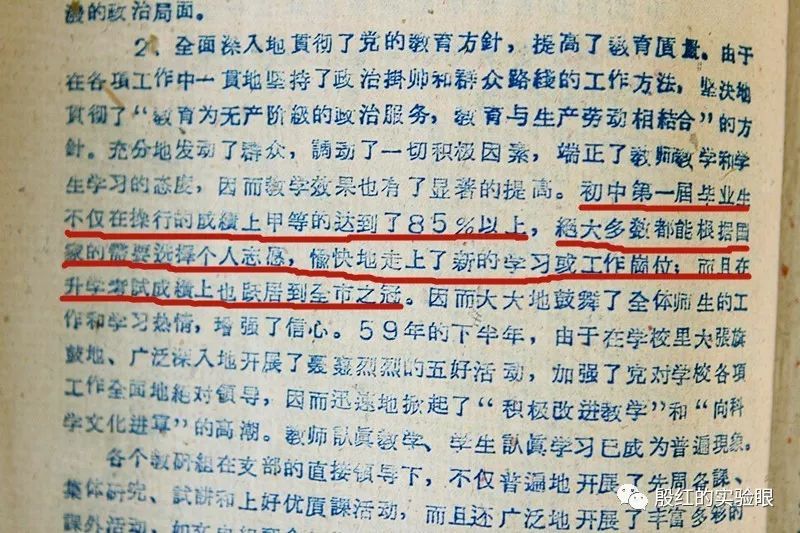 激的政治局面。
2、全面深入地貫彻了党的教育方針，提高了教育质量。由于
在各項工作中一貫地坚持了政治掛帅和群众路綫的工作方法，坚决地
貫彻了“教育为无产阶級的政治服务，教育与生产劳动相結合”的方
針。充分地发动了群众，調动了一切积极因素，端正了教师教学和学
生学习的态度，因而教学效果也有了显著的提高。初中第一届毕业生
不仅在操行的成績上甲等的达到了85％以上，絕大多数都能根据国
家的需要选择个人志愿，愉快地走上了新的学习或工作岗位；而且在
升学考試成績上也跃居到全市之冠。因而大大地鼓舞了全体师生的工
作和学习热情，增强了信心。59年的下半年，由于在学校里大張旗
鼓地、广泛深入地开展了轰轰烈烈的五好活动，加强了党对学校各項
工作全面地絕对領导，因而迅速地掀起了“积极改进教学”和“向科
学文化进軍”的高潮。教师认眞教学、学生认眞学习已成为普遍現象。
各个教硏組在支部的直接領导下，不仅普遍地开展了先周备課、
集体硏究、試講和上好优质課活动，而且还广泛地开展了丰富多彩的
課外活动，如
殷红的实验眼